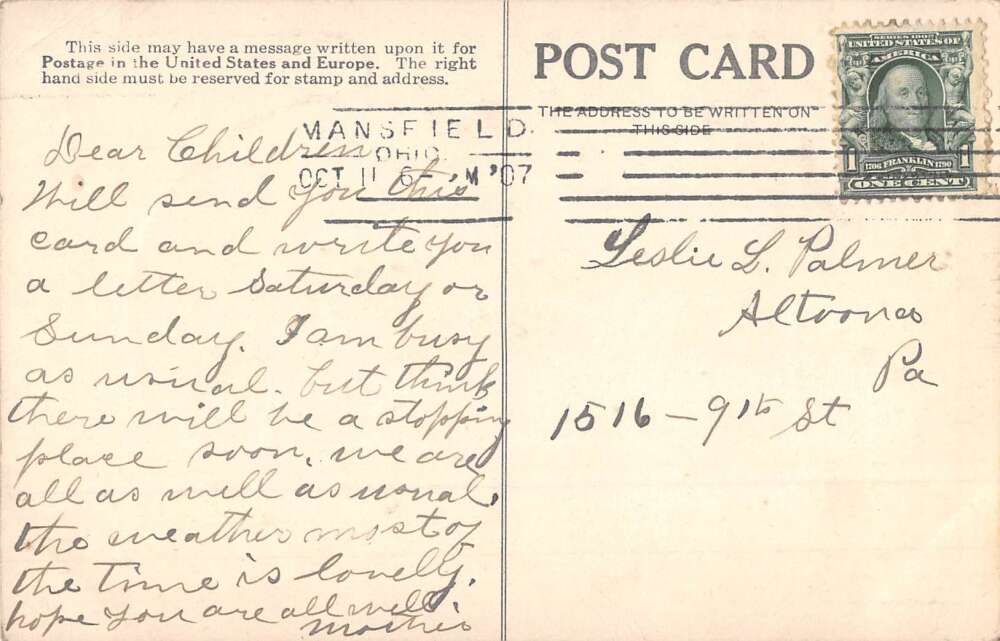 This side may have a message written upon it for
Postage in the United States and Europe. The right
hand side must be reserved for stamp and address.
Dear Children
Will send you this
card and write you
a letter Saturday or
Sunday. I am busy
as usual. but think
there will be a stopping
place soon. we are
all as well as usual.
the weather most of
the time is lovely.
hope you are all well.
Mother
POST CARD
THE ADDRESS TO BE WRITTEN ON
THIS SIDE
MANSFIELD
OHIO.
OCT 11 6- M '07
SERIES 1902
UNITED STATES OF
AMERICA
1706 FRANKLIN 1790
1 1
ONE CENT
Leslie L. Palmer
Altoona
Pa
1516 - 9th St